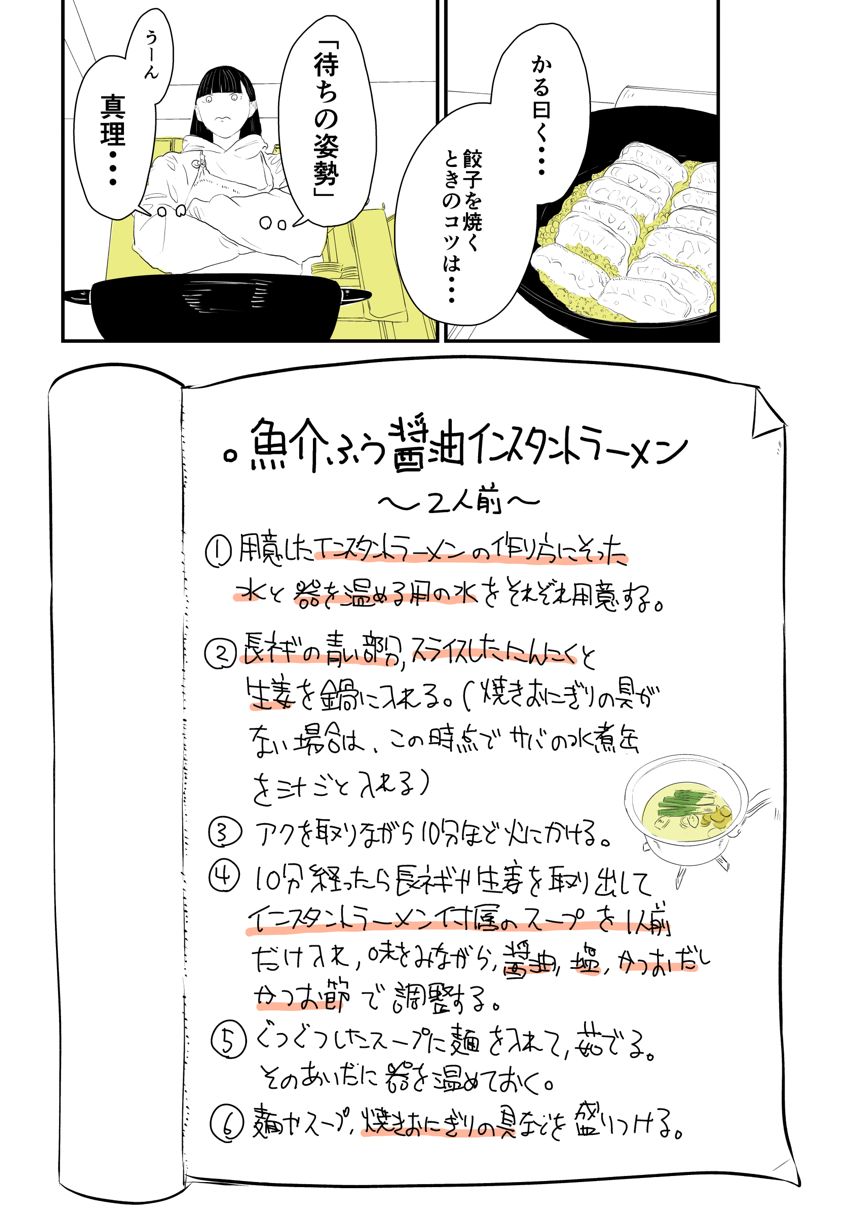 かる曰く・・・
餃子を焼く
ときのコツは・・・
「待ちの姿勢」
うーん
真理・・・
。魚介ふう醤油インスタントラーメン
〜2人前〜
① 用意したインスタントラーメンの作り方にそった
水と器を温める用の水をそれぞれ用意する。
② 長ネギの青い部分,スライスしたにんにくと
生姜を鍋に入れる。(焼きおにぎりの具が
ない場合は、この時点でサバの水煮缶
を汁ごと入れる)
③ アクを取りながら10分ほど火にかける。
④ 10分経ったら長ネギや生姜を取り出して
インスタントラーメン付属のスープを1人前
だけ入れ,味をみながら,醤油,塩,かつおだし
かつお節で調整する。
⑤ ぐつぐつしたスープに麺を入れて,茹でる。
そのあいだに器を温めておく。
⑥ 麺やスープ,焼きおにぎりの具などを盛りつける。